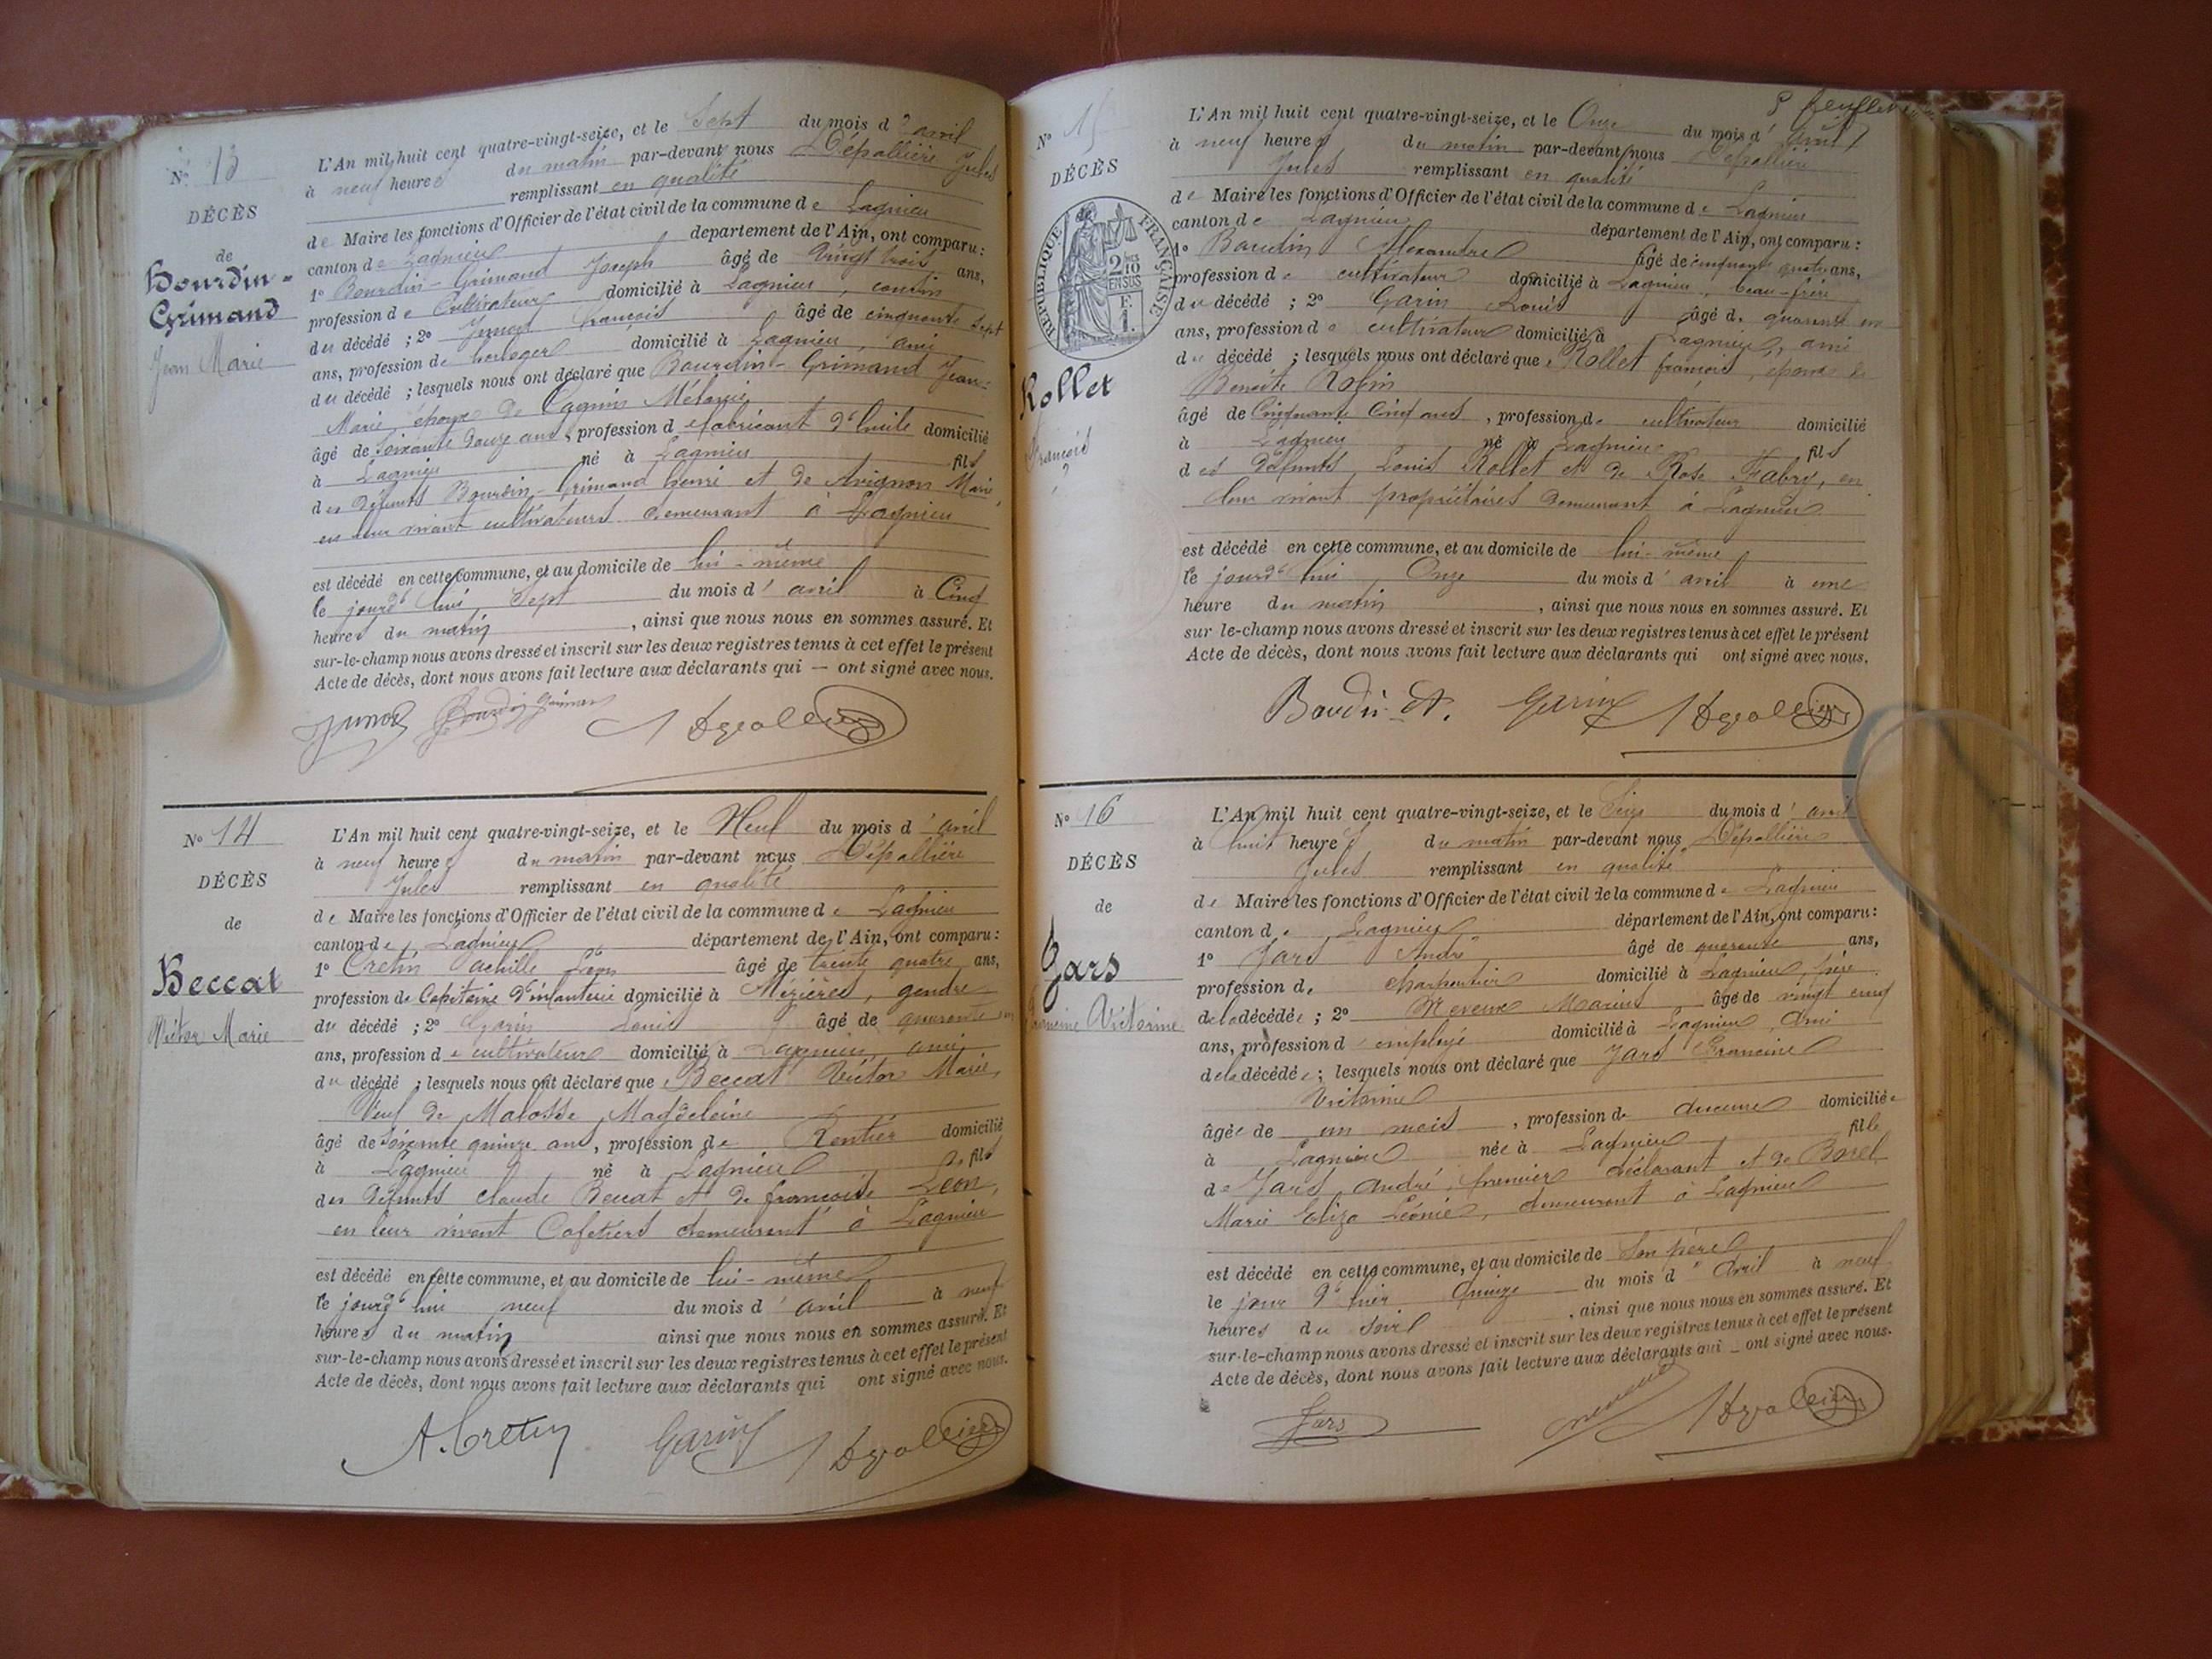 Nº 13
DÉCÈS
de
Bourdin-
Grimand
Jean Marie
L'An mil huit cent quatre-vingt-seize, et le Sept du mois d'avril
à neuf heures du matin par-devant nous Dépallière Jules
remplissant en qualité
de Maire les fonctions d'Officier de l'état civil de la commune de Lagnieu
canton de Lagnieu département de l'Ain, ont comparu :
1º Bourdin-Grimand Joseph âgé de Vingt trois ans,
profession de Cultivateur domicilié à Lagnieu, cousin
du décédé ; 2º Junod François âgé de cinquante sept
ans, profession de horloger domicilié à Lagnieu, ami
du décédé ; lesquels nous ont déclaré que Bourdin-Grimand Jean-
Marie, époux de Mélanie
âgé de Soixante douze ans, profession de fabricant d'huile domicilié
à Lagnieu né à Lagnieu fils
des défunts Bourdin-Grimand henri et de Avignon Marie,
en leur vivant cultivateurs demeurant à Lagnieu
est décédé en cette commune, et au domicile de lui-même
le jourd'hui Sept du mois d'avril à Cinq
heures du matin, ainsi que nous nous en sommes assuré. Et
sur-le-champ nous avons dressé et inscrit sur les deux registres tenus à cet effet le présent
Acte de décès, dont nous avons fait lecture aux déclarants qui — ont signé avec nous.
Junod Bourdin Grimand J Dépallière
Nº 14
DÉCÈS
de
Beccat
Victor Marie
L'An mil huit cent quatre-vingt-seize, et le Neuf du mois d'avril
à neuf heures du matin par-devant nous Dépallière
Jules remplissant en qualité
de Maire les fonctions d'Officier de l'état civil de la commune de Lagnieu
canton de Lagnieu département de l'Ain, ont comparu :
1º Cretin achille Léon âgé de trente quatre ans,
profession de Capitaine d'infanterie domicilié à Mézières, gendre
du décédé ; 2º Garin Louis âgé de quarante un
ans, profession de cultivateur domicilié à Lagnieu, ami
du décédé ; lesquels nous ont déclaré que Beccat Victor Marie,
Veuf de Malosse Magdeleine
âgé de Soixante quinze ans, profession de Rentier domicilié
à Lagnieu né à Lagnieu fils
des défunts claude Beccat et de francoise Leon,
en leur vivant Cafetiers demeurant à Lagnieu
est décédé en cette commune, et au domicile de lui-même
le jourd'hui neuf du mois d'avril à neuf
heures du matin ainsi que nous nous en sommes assuré. Et
sur-le-champ nous avons dressé et inscrit sur les deux registres tenus à cet effet le présent
Acte de décès, dont nous avons fait lecture aux déclarants qui ont signé avec nous.
A. Cretin Garin J Dépallière
5 feuillet
Nº 15
DÉCÈS
RÉPUBLIQUE FRANÇAISE
2/10 EN SUS
F. 1.
Rollet
François
L'An mil huit cent quatre-vingt-seize, et le Onze du mois d'avril
à neuf heures du matin par-devant nous Dépallière
Jules remplissant en qualité
de Maire les fonctions d'Officier de l'état civil de la commune de Lagnieu
canton de Lagnieu département de l'Ain, ont comparu :
1º Baudin Alexandre âgé de cinquante quatre ans,
profession de cultivateur domicilié à Lagnieu, beau-frère
du décédé ; 2º Garin Louis âgé de quarante un
ans, profession de cultivateur domicilié à Lagnieu, ami
du décédé ; lesquels nous ont déclaré que Rollet françois, époux de
Benoite Robin
âgé de Cinquante Cinq ans, profession de cultivateur domicilié
à Lagnieu né à Lagnieu fils
des défunts Louis Rollet et de Rose Fabry, en
leur vivant propriétaires demeurant à Lagnieu
est décédé en cette commune, et au domicile de lui-même
le jourd'hui Onze du mois d'avril à une
heure du matin, ainsi que nous nous en sommes assuré. Et
sur le-champ nous avons dressé et inscrit sur les deux registres tenus à cet effet le présent
Acte de décès, dont nous avons fait lecture aux déclarants qui ont signé avec nous.
Baudin A. Garin J Dépallière
Nº 16
DÉCÈS
de
Jars
Francine Victorine
L'An mil huit cent quatre-vingt-seize, et le Seize du mois d'avril
à huit heures du matin par-devant nous Dépallière
Jules remplissant en qualité
de Maire les fonctions d'Officier de l'état civil de la commune de Lagnieu
canton de Lagnieu département de l'Ain, ont comparu :
1º Jars André âgé de quarante ans,
profession de charpentier domicilié à Lagnieu, père
de la décédée ; 2º Neveux Marius âgé de vingt cinq
ans, profession d'employé domicilié à Lagnieu ami
de la décédée ; lesquels nous ont déclaré que Jars Francine
Victorine
âgée de un mois, profession de aucune domiciliée
à Lagnieu née à Lagnieu fille
de Jars André, premier déclarant et de Borel
Marie Eliza Léonie, demeurant à Lagnieu
est décédé en cette commune, et au domicile de Son père
le jour d'hier quinze du mois d'avril à neuf
heures du soir, ainsi que nous nous en sommes assuré. Et
sur-le-champ nous avons dressé et inscrit sur les deux registres tenus à cet effet le présent
Acte de décès, dont nous avons fait lecture aux déclarants qui — ont signé avec nous.
Jars neveux J Dépallière